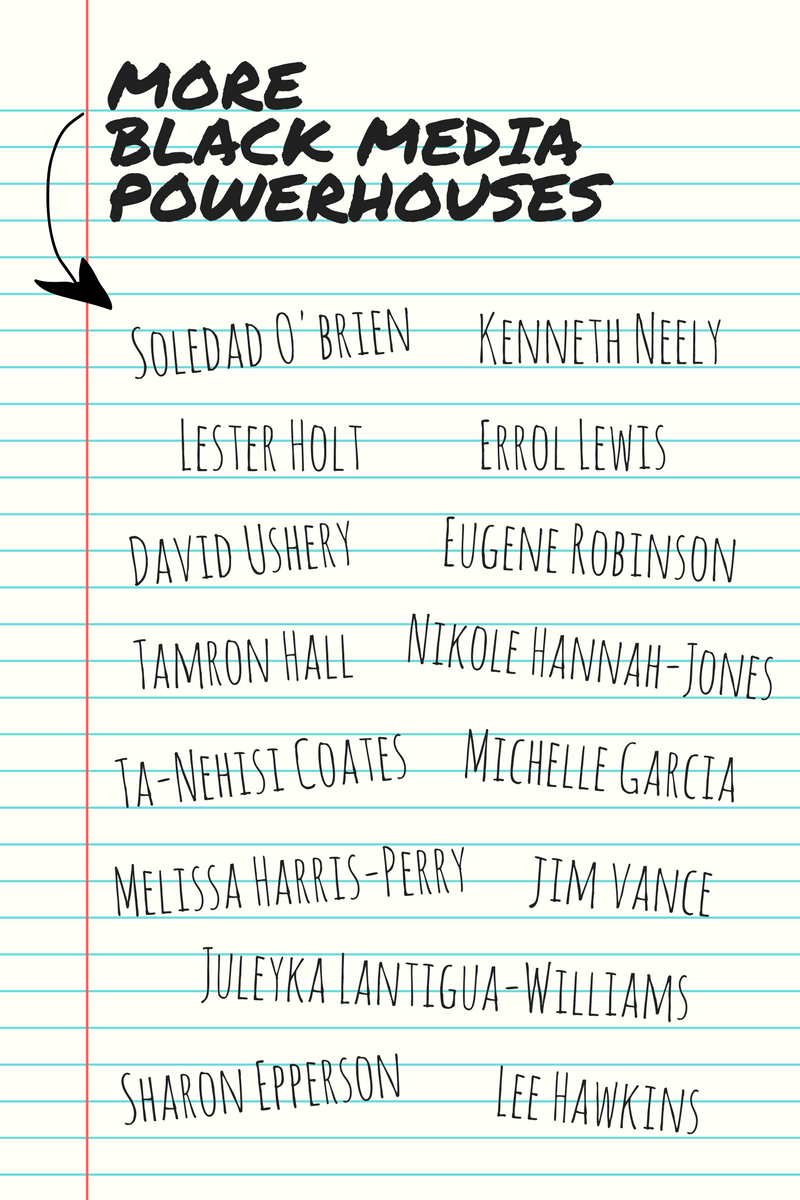 MORE
BLACK MEDIA
POWERHOUSES
SOLEDAD O'BRIEN KENNETH NEELY
LESTER HOLT ERROL LEWIS
DAVID USHERY EUGENE ROBINSON
TAMRON HALL NIKOLE HANNAH-JONES
TA-NEHISI COATES MICHELLE GARCIA
MELISSA HARRIS-PERRY JIM VANCE
JULEYKA LANTIGUA-WILLIAMS
SHARON EPPERSON LEE HAWKINS